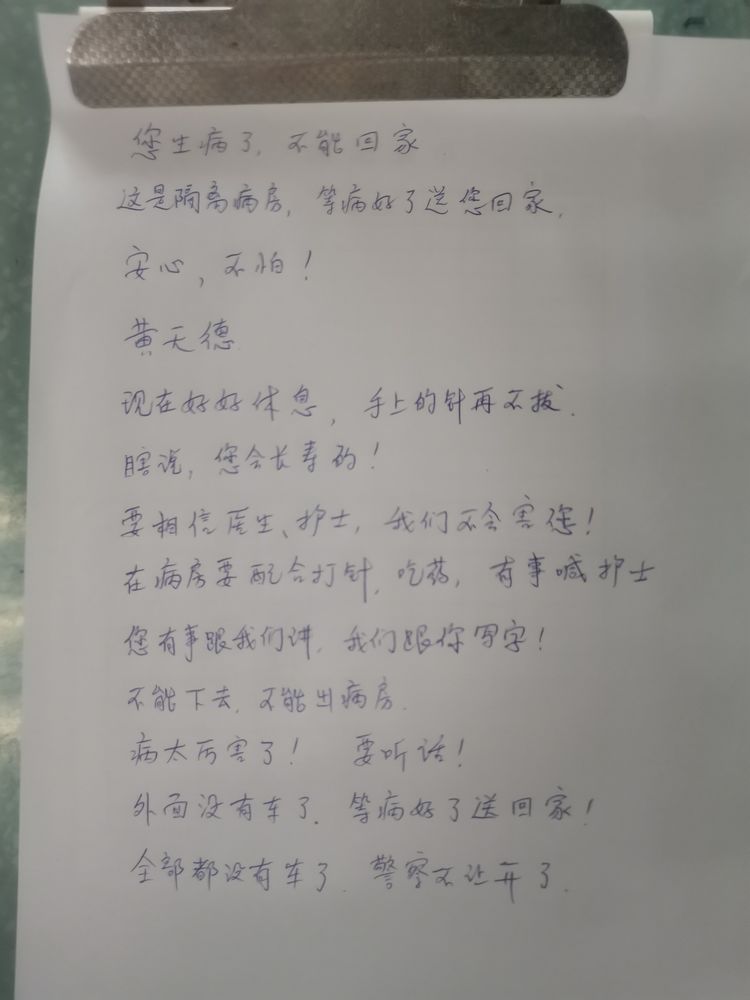 您生病了，不能回家
这是隔离病房，等病好了送您回家，
安心，不怕！
黄天德
现在好好休息，手上的针再不拔．
瞎说，您会长寿的！
要相信医生、护士，我们不会害您！
在病房要配合打针，吃药，有事喊护士
您有事跟我们讲，我们跟你写字！
不能下去．不能出病房．
病太厉害了！ 要听话！
外面没有车了．等病好了送回家！
全部都没有车了．警察不让开了．